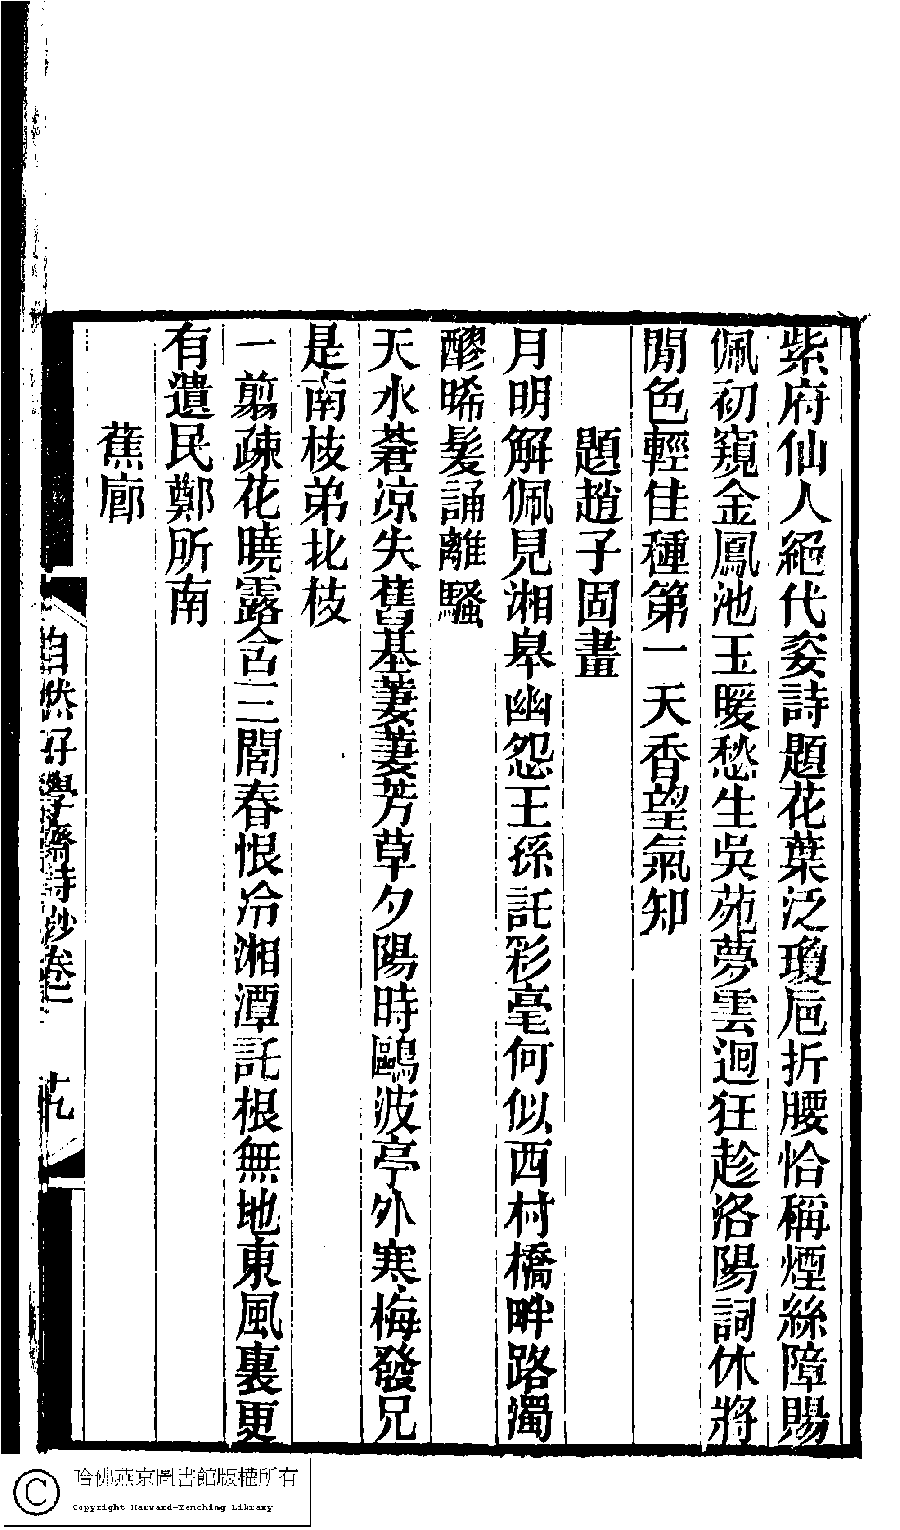 紫府仙人絕代姿詩題花葉泛瓊卮折腰恰稱煙絲障賜
佩初窺金鳳池玉暖愁生吳苑夢雲迴狂趁洛陽詞休將
閒色輕佳種第一天香望氣知
題趙子固畫
月明解佩見湘皋幽怨王孫託彩毫何似西村橋畔路濁
醪晞髮誦離騷
天水蒼凉失舊基萋萋芳草夕陽時鷗波亭外寒梅發兄
是南枝弟北枝
一翦疎花曉露含三閭春恨冷湘潭託根無地東風裏更
有遺民鄭所南
蕉廊
自然好學齋詩鈔卷二
哈佛燕京圖書館版權所有
Copyright Harvard-Yenching Library